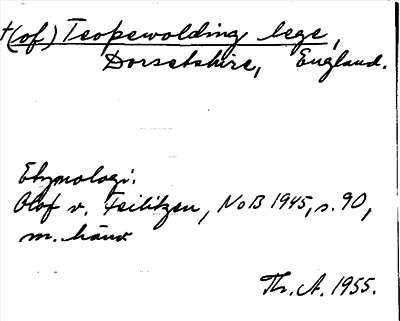 †(of) Teopewolding lege,
Dorsetshire, England.
Etymologi.
Olof v. Feilitzen, NoB 1945, s. 90,
m. hänv.
Th. A. 1955.